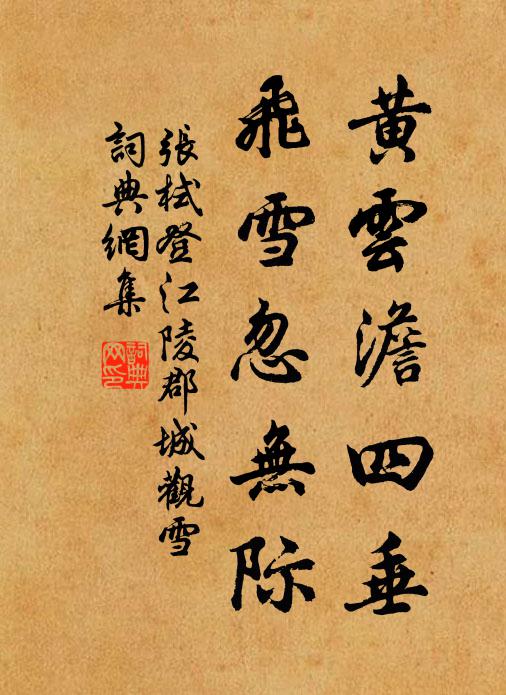 黃雲澹四垂
飛雪忽無际
張栻登江陵郡城觀雪
詞典網集
詞典網印